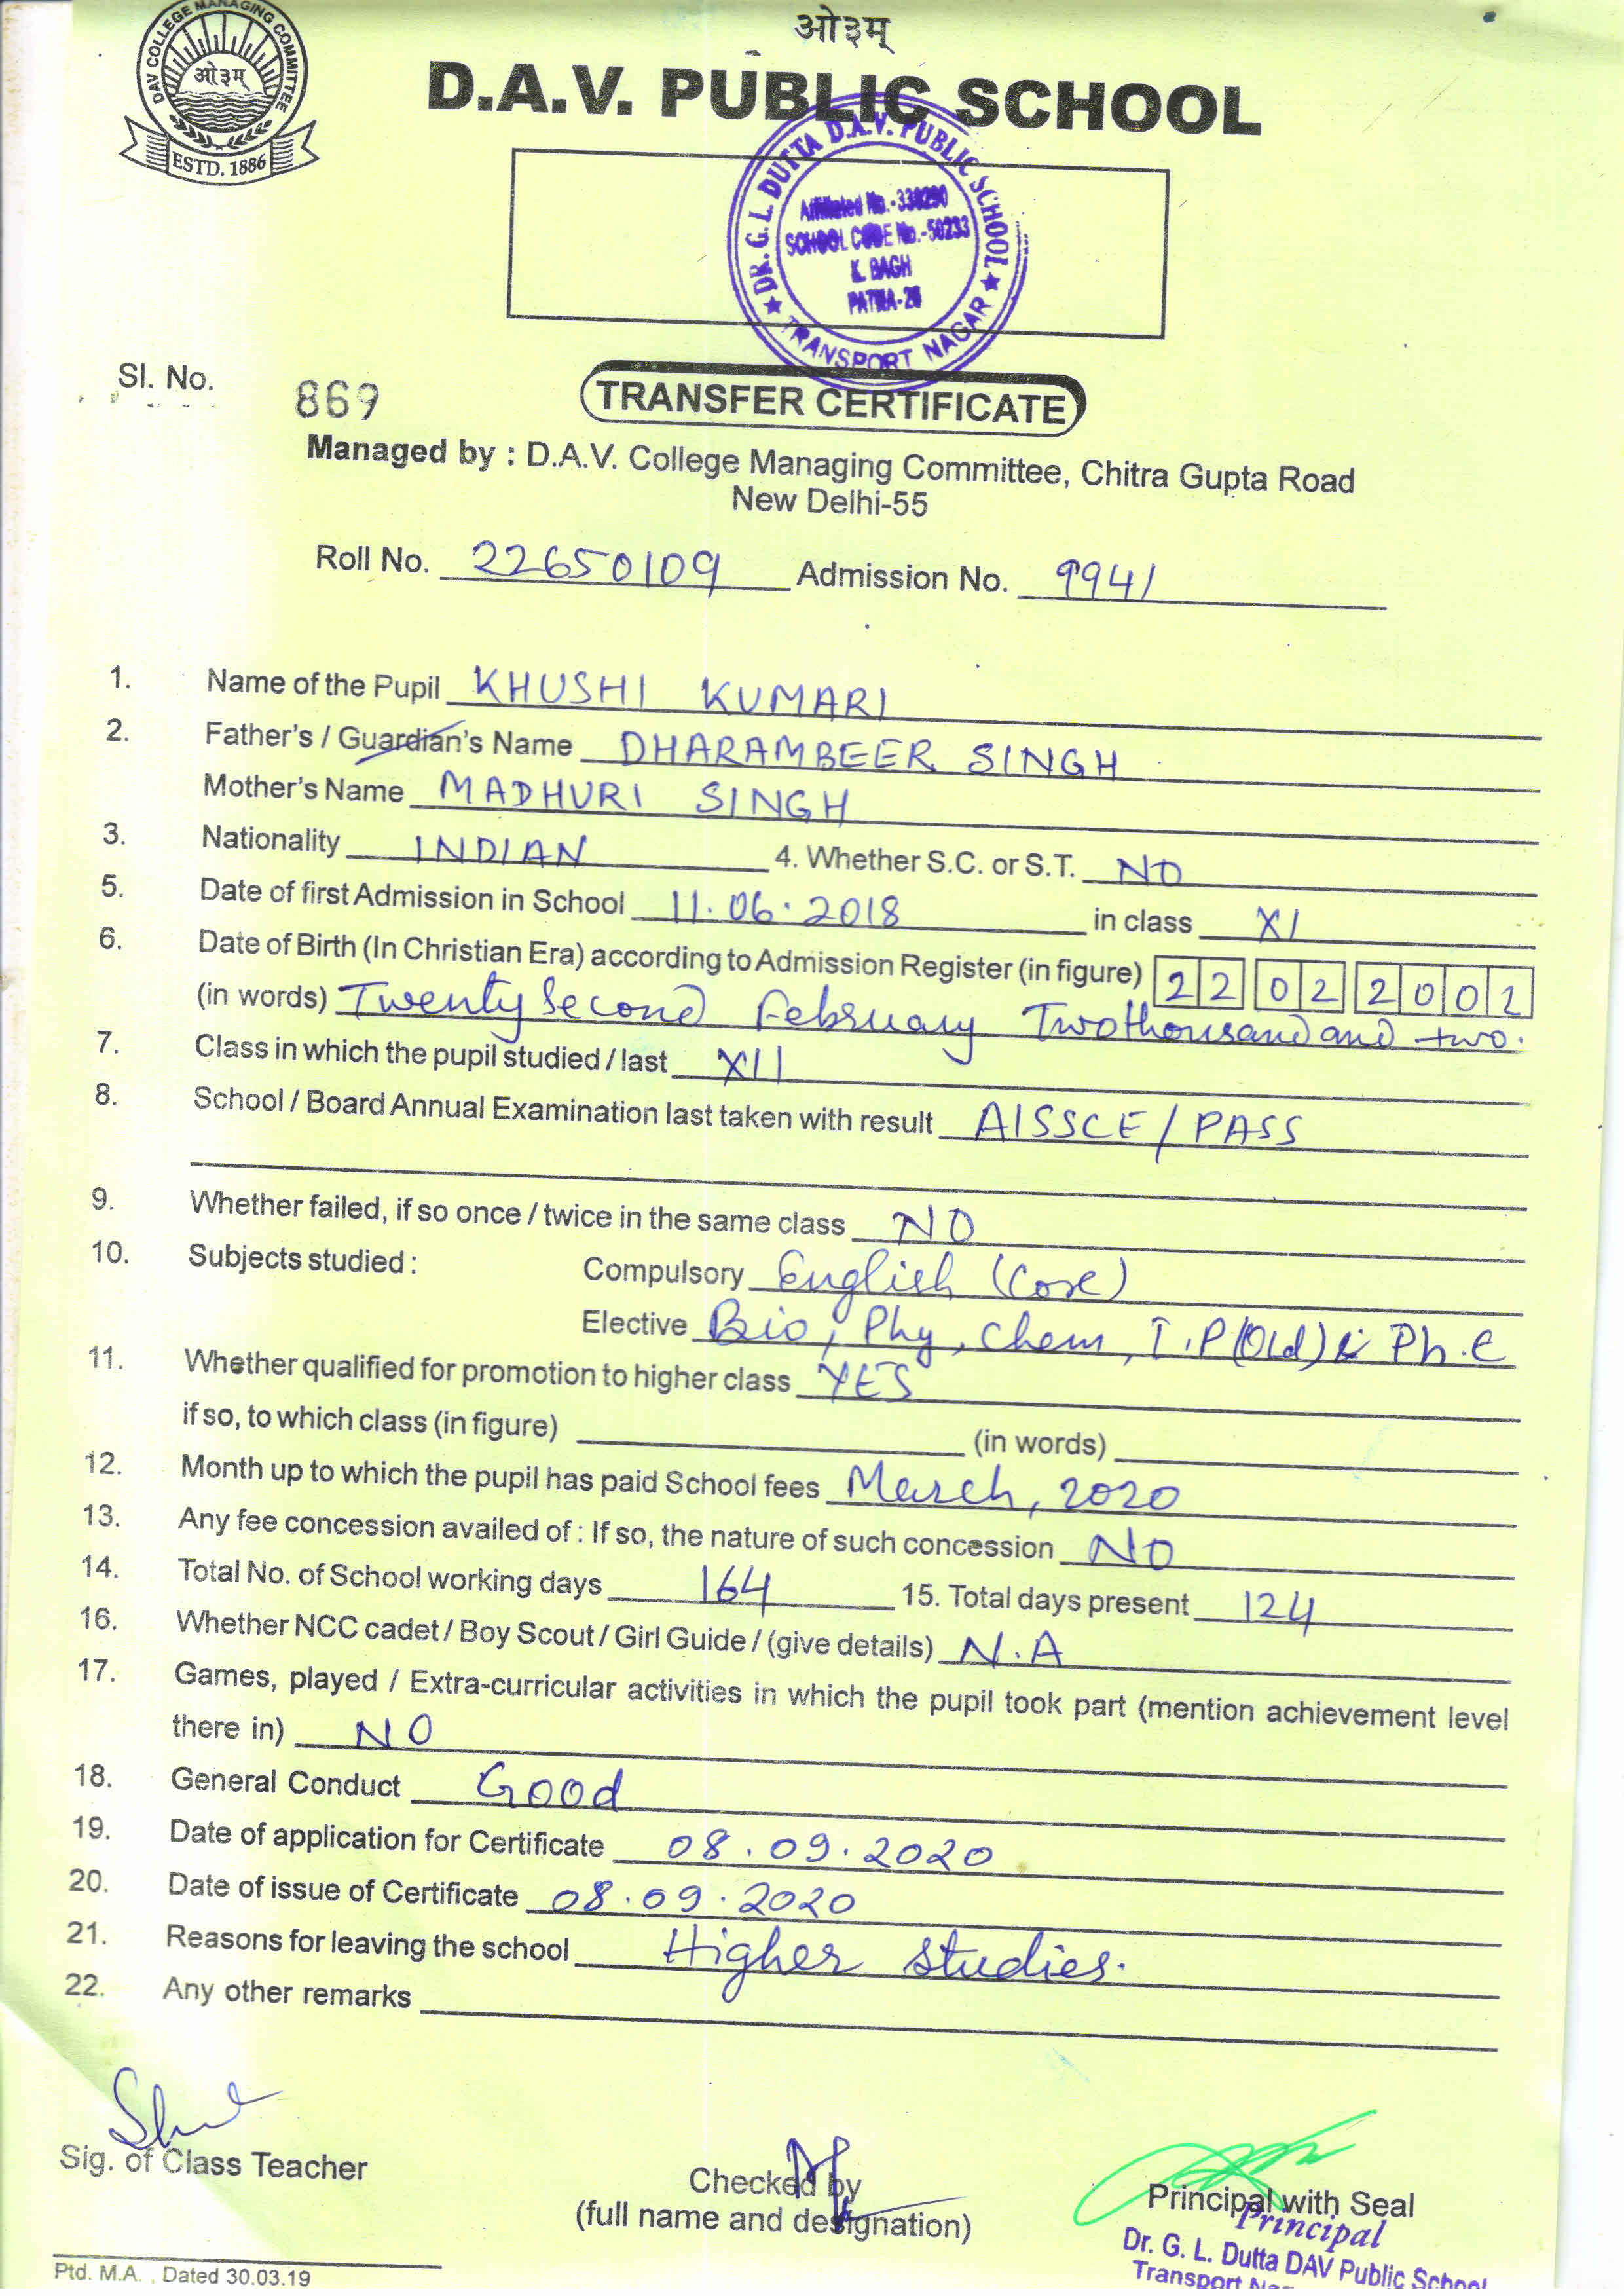 ओ३म्
DAV COLLEGE MANAGING COMMITTEE
ओ३म्
ESTD. 1886
D.A.V. PUBLIC SCHOOL
DR. G. L. DUTTA D.A.V. PUBLIC SCHOOL
Affiliated No.-330290
SCHOOL CODE No.-50233
K. BAGH
PATNA-26
TRANSPORT NAGAR
Sl. No. 869
TRANSFER CERTIFICATE
Managed by : D.A.V. College Managing Committee, Chitra Gupta Road
New Delhi-55
Roll No. 22650109 Admission No. 9941
1. Name of the Pupil KHUSHI KUMARI
2. Father's / Guardian's Name DHARAMBEER SINGH
Mother's Name MADHURI SINGH
3. Nationality INDIAN 4. Whether S.C. or S.T. NO
5. Date of first Admission in School 11.06.2018 in class XI
6. Date of Birth (In Christian Era) according to Admission Register (in figure) 22 02 2002
(in words) Twenty Second February Two thousand and two.
7. Class in which the pupil studied / last XII
8. School / Board Annual Examination last taken with result AISSCE / PASS
9. Whether failed, if so once / twice in the same class NO
10. Subjects studied : Compulsory English (Core)
Elective Bio, Phy, Chem, I.P (Old) & Ph.E
11. Whether qualified for promotion to higher class YES
if so, to which class (in figure) (in words)
12. Month up to which the pupil has paid School fees March, 2020
13. Any fee concession availed of : If so, the nature of such concession NO
14. Total No. of School working days 164 15. Total days present 124
16. Whether NCC cadet / Boy Scout / Girl Guide / (give details) N.A
17. Games, played / Extra-curricular activities in which the pupil took part (mention achievement level
there in) NO
18. General Conduct Good
19. Date of application for Certificate 08.09.2020
20. Date of issue of Certificate 08.09.2020
21. Reasons for leaving the school Higher studies.
22. Any other remarks
Sig. of Class Teacher
Checked by
(full name and designation)
Principal with Seal
Principal
Dr. G. L. Dutta DAV Public School
Transport
Ptd. M.A. , Dated 30.03.19